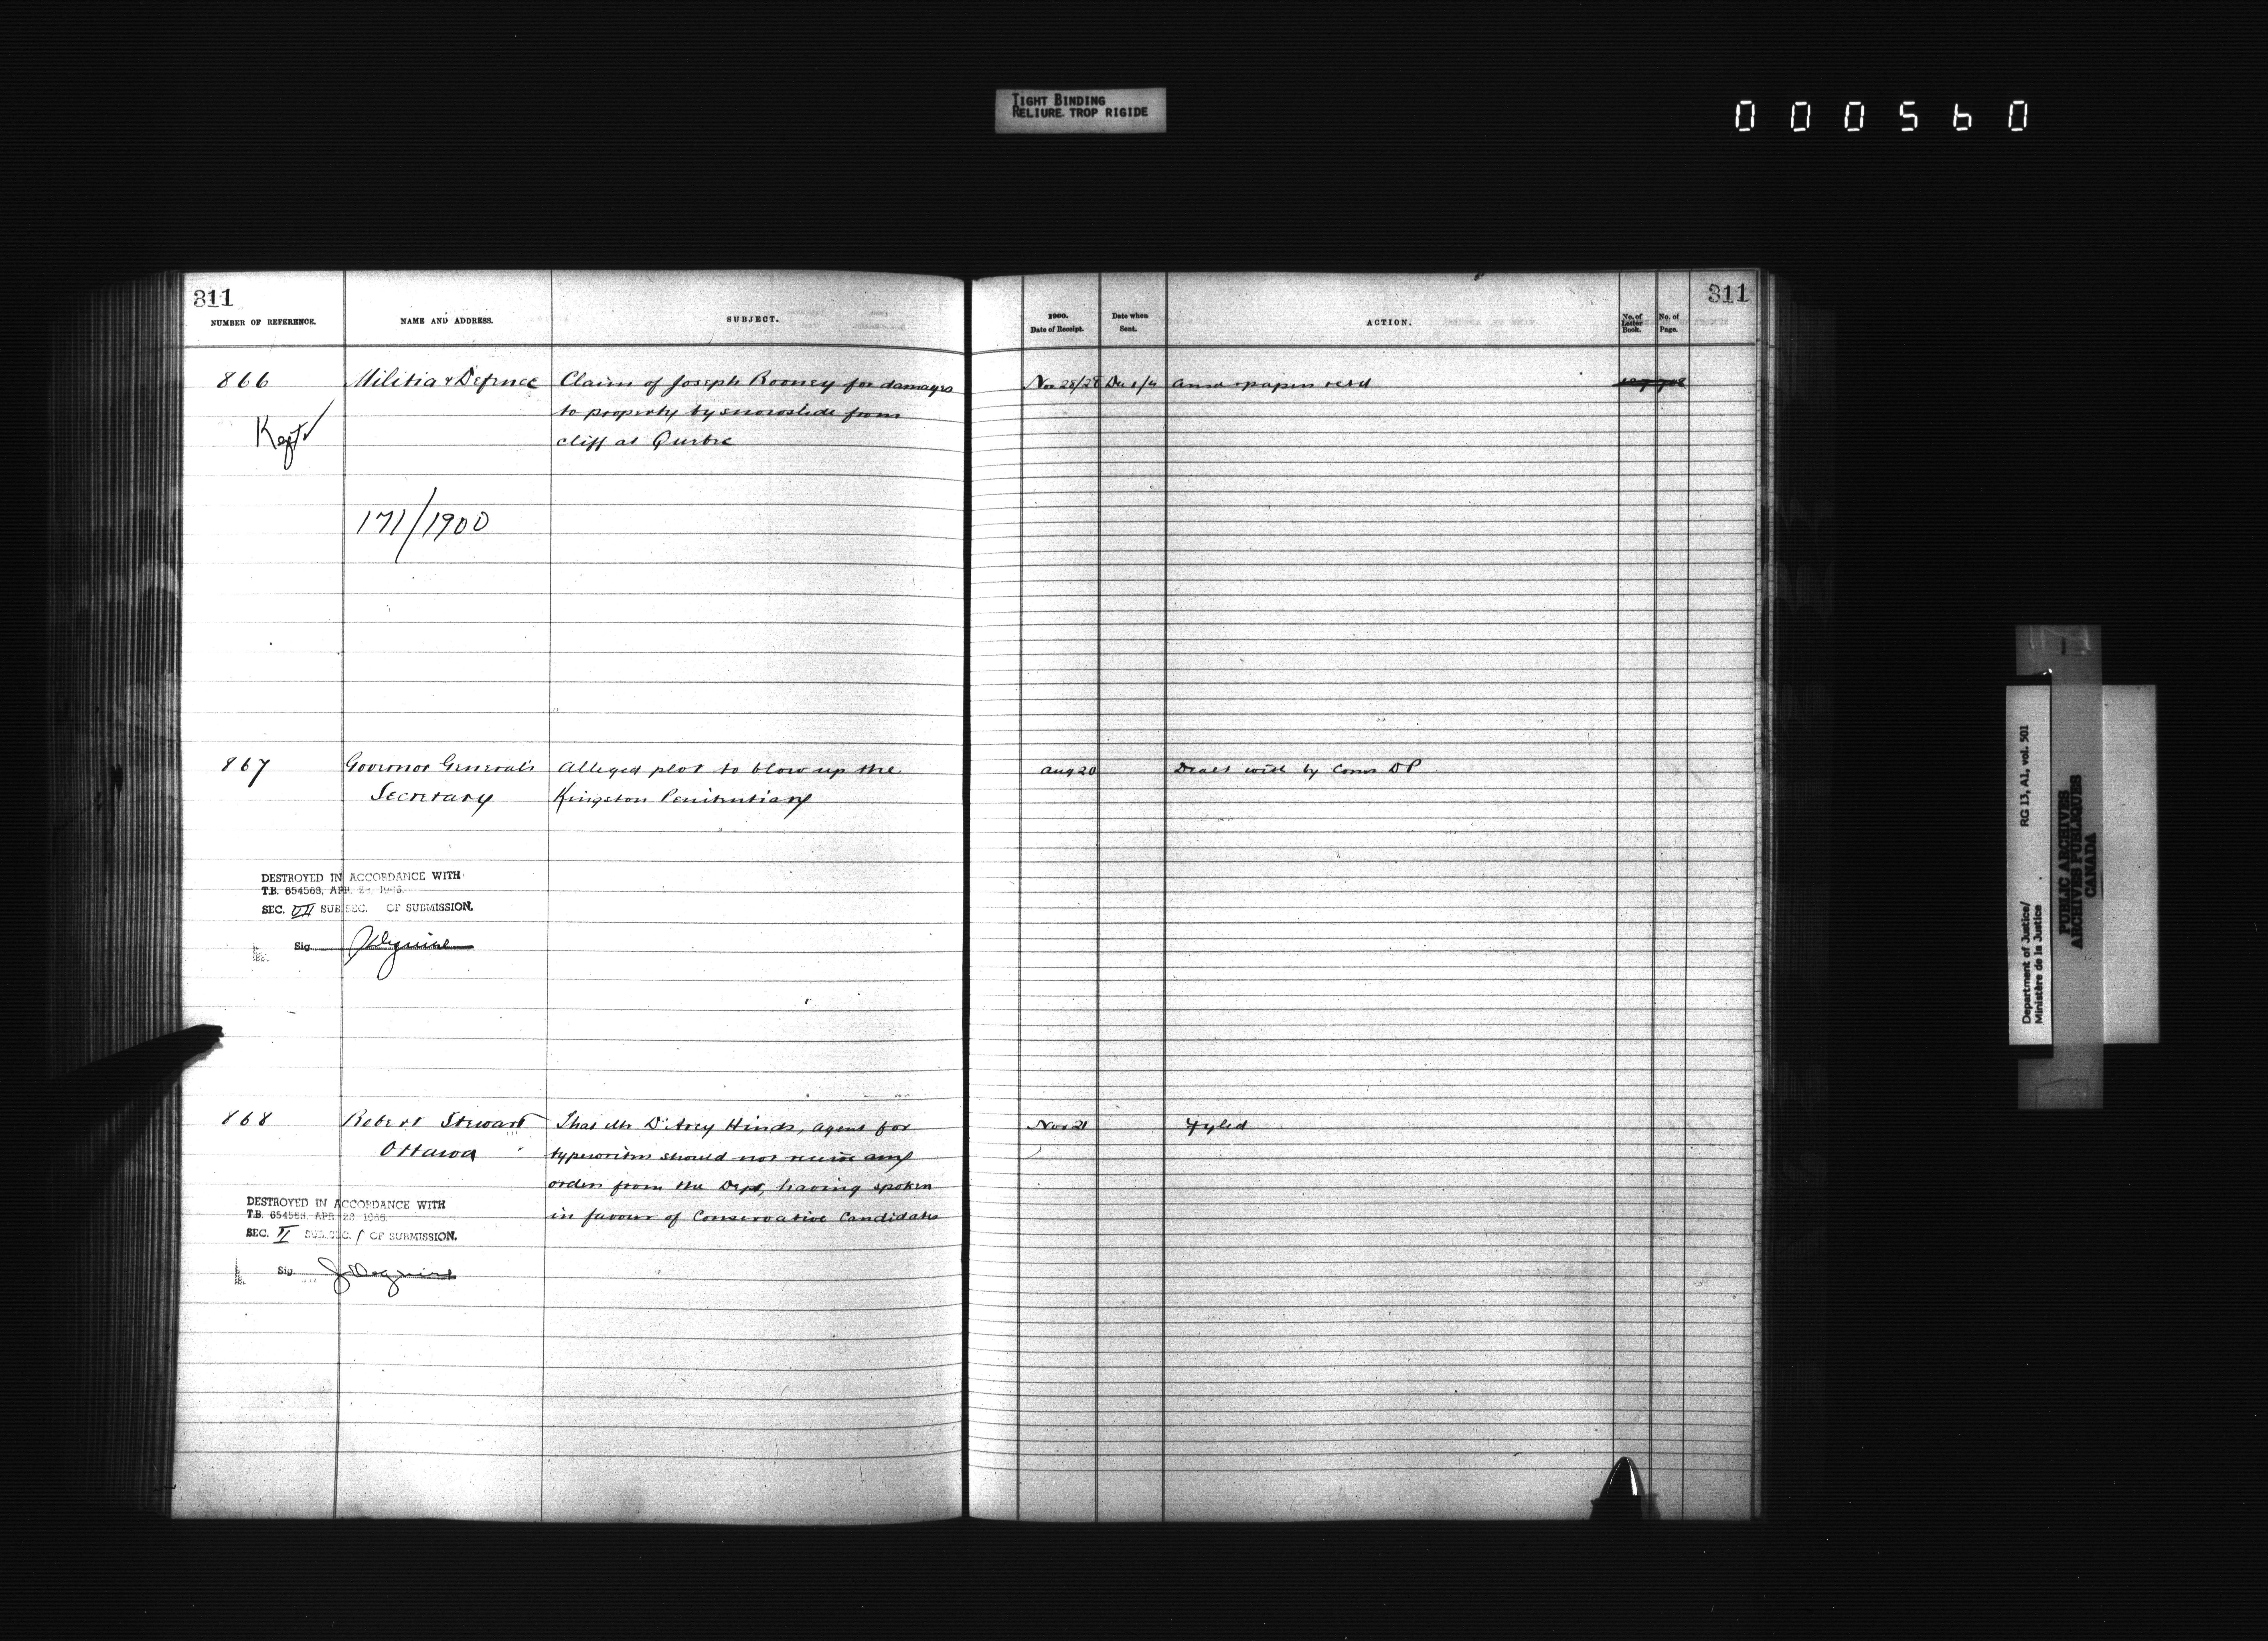 TIGHT BINDING
RELIURE TROP RIGIDE
000560
311
NUMBER OF REFERENCE.
NAME AND ADDRESS.
SUBJECT.
866
Militia & Defence
Claim of Joseph Rooney for damages
to property by snowslide from
cliff at Quebec
Kept
171/1900
867
Governor General's
Secretary
Alleged plot to blow up the
Kingston Penitentiary
DESTROYED IN ACCORDANCE WITH
T.B. 654568, APR.
SEC. VII SUB SEC. OF SUBMISSION.
Sig.
868
Robert Stewart
Ottawa
That Mr D'Arcy Hinds, agent for
typewriters should not receive any
orders from the Dept, having spoken
in favour of Conservative Candidates
DESTROYED IN ACCORDANCE WITH
T.B. 654568, APR 28 1966.
SEC. II SUB.SEC. 1 OF SUBMISSION.
Sig.
311
1900.
Date of Receipt.
Date when
Sent.
ACTION.
No. of
Letter
Book.
No. of
Page.
Nov 28/28 Dec 1/4 papers retd
Aug 20 Dealt with by Coms DP
Nov 21 Fyled
Department of Justice/ RG 13, A1, vol. 501
Ministère de la Justice
PUBLIC ARCHIVES
ARCHIVES PUBLIQUES
CANADA